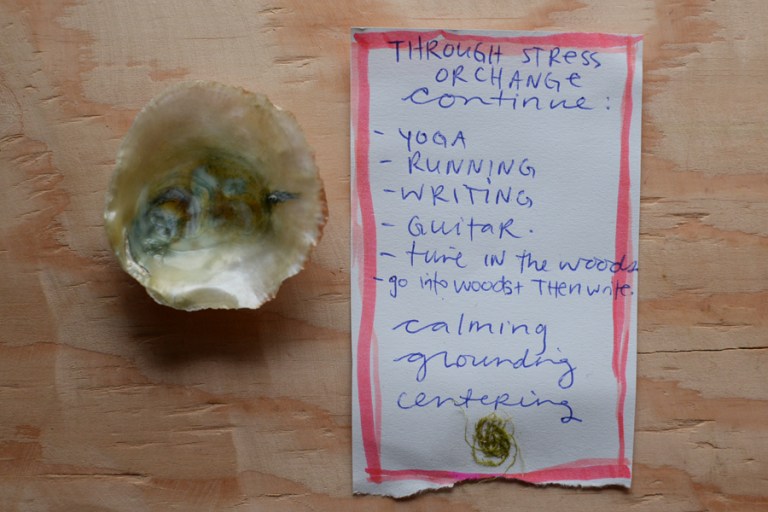 THROUGH STRESS
OR CHANGE
continue:
- YOGA
- RUNNING
- WRITING
- GUITAR.
- time IN the woods
- go into woods + THEN write.
calming
grounding
centering